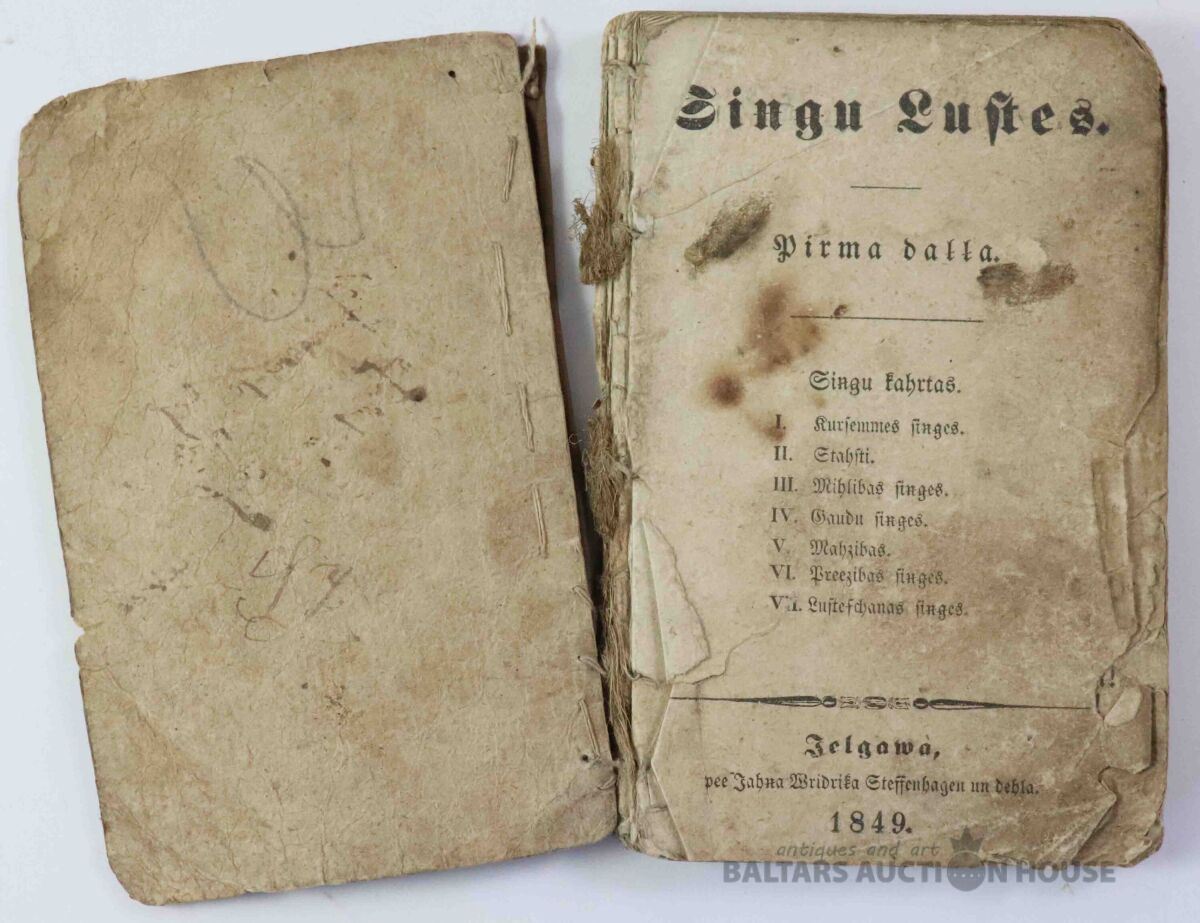 Singu Lustes.
Pirma dalla.
Singu kahrtas.
I. Kursemmes singes.
II. Stahsti.
III. Mihlibas singes.
IV. Gaudu singes.
V. Mahzibas.
VI. Preezibas singes.
VII. Lusteschanas singes.
Jelgawâ,
pee Jahna Wridrika Steffenhagen un dehla.
1849.
antiques and art
BALTARS AUCTION HOUSE